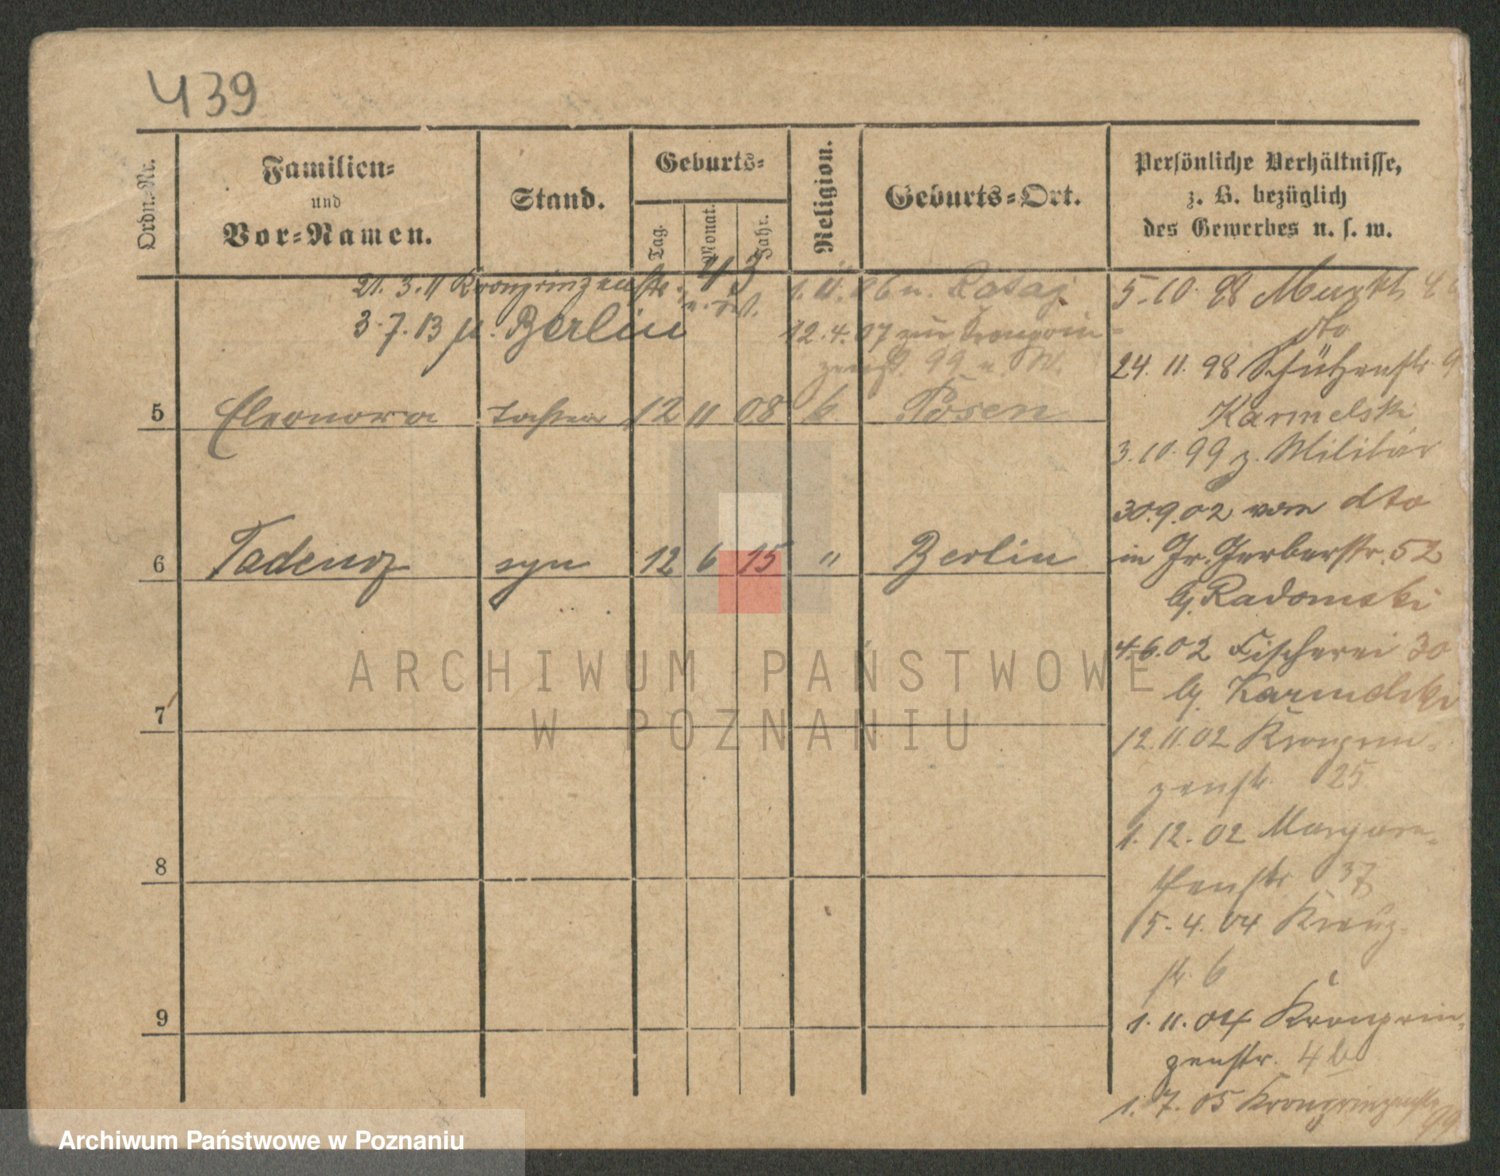 439
Ordn.-Nr.
Familien-
und
Vor-Namen.
Stand.
Geburts-
Tag.
Monat.
Jahr.
Religion.
Geburts-Ort.
Persönliche Verhältnisse,
z. B. bezüglich
des Gewerbes u. s. w.
21. 3. 11 Kronprinzenstr. 43
3. 7. 13 n. Berlin
1. 11. 06 n. Rataj
12. 4. 07 zur Kronprin-
zenstr. 99
5 Eleonora Tochter 12 11 08 k. Posen
6 Tadeusz syn 12 6 15 " Berlin
7
8
9
5. 10. 98 Markt
dto
24. 11. 98 Schützenstr
Karmelski
3. 10. 99 z. Militär
30. 9. 02 vom dto
in Gr. Gerberstr. 52
b/ Radomski
4. 6. 02 Fischerei 30
b/ Karmelski
12. 11. 02 Kronprin-
zenstr. 25
1. 12. 02 Margare-
thenstr 37
5. 4. 04 Kreuz-
str. 6
1. 11. 04 Kronprin-
zenstr. 4b
1. 7. 05 Kronprinzenstr
99
ARCHIWUM PAŃSTWOWE
W POZNANIU
Archiwum Państwowe w Poznaniu